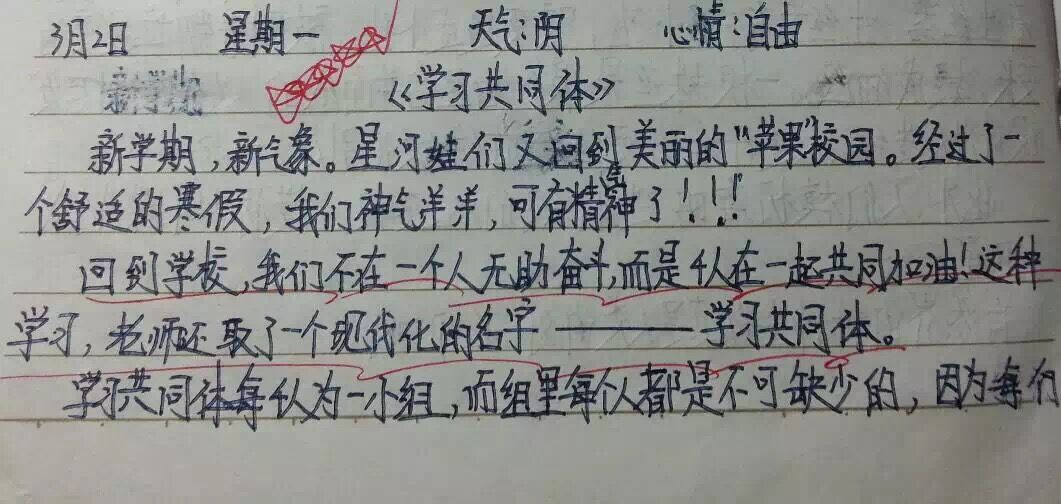 3月2日 星期一 天气:阴 心情:自由
新学期 《学习共同体》
新学期,新气象。星河娃们又回到美丽的“苹果”校园。经过了一
个舒适的寒假,我们神气洋洋,可有精神了!!!
回到学校,我们不在一个人无助奋斗,而是4人在一起共同加油!这种
学习,老师还取了一个现代化的名字———学习共同体。
学习共同体每4人为一小组,而组里每个人都是不可缺少的,因为每